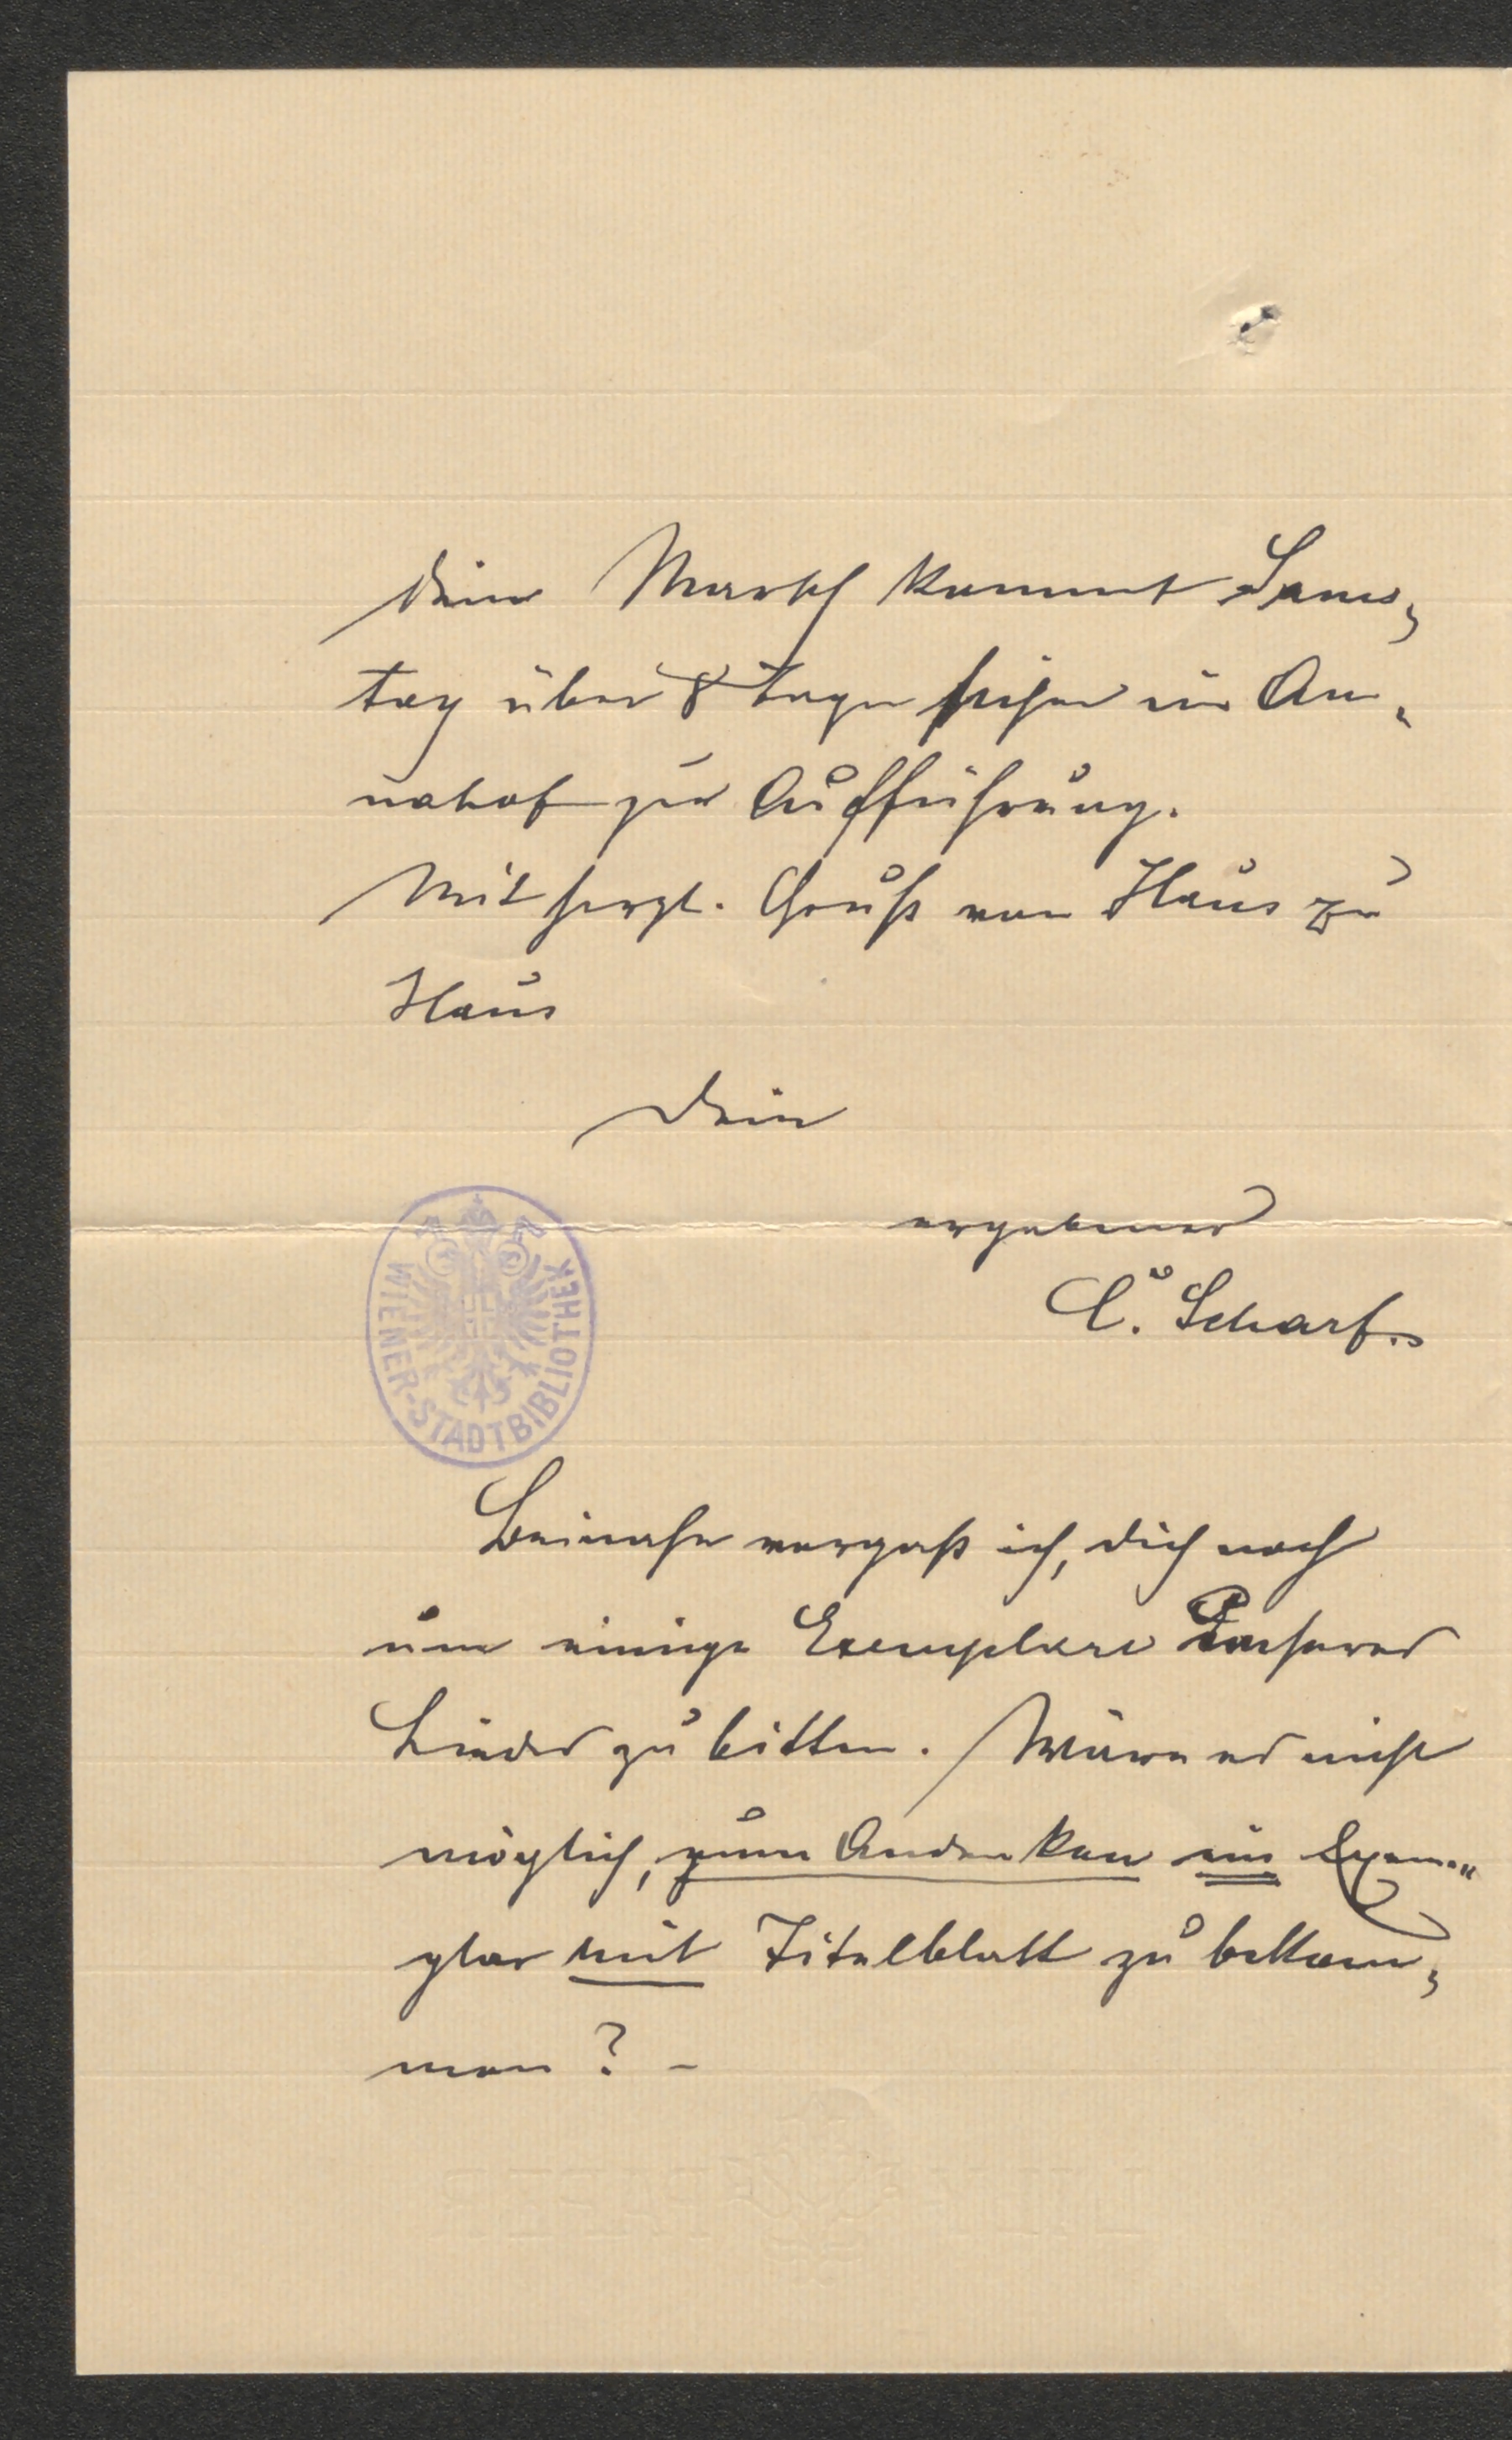 Dein Marsch kommt Sams-
tag über 8 Tage im An-
nahof zur Aufführung.
Mit herzl. Gruß von Haus zu
Haus
Dein
ergebener
C. Scharf.
WIENER-STADTBIBLIOTHEK
Beinahe vergaß ich, dich noch
um einige Exemplare
Lieder zu bitten. Wäre es nicht
möglich, zum Andenken ein Exem-
plar mit Titelblatt zu bekom-
men? -